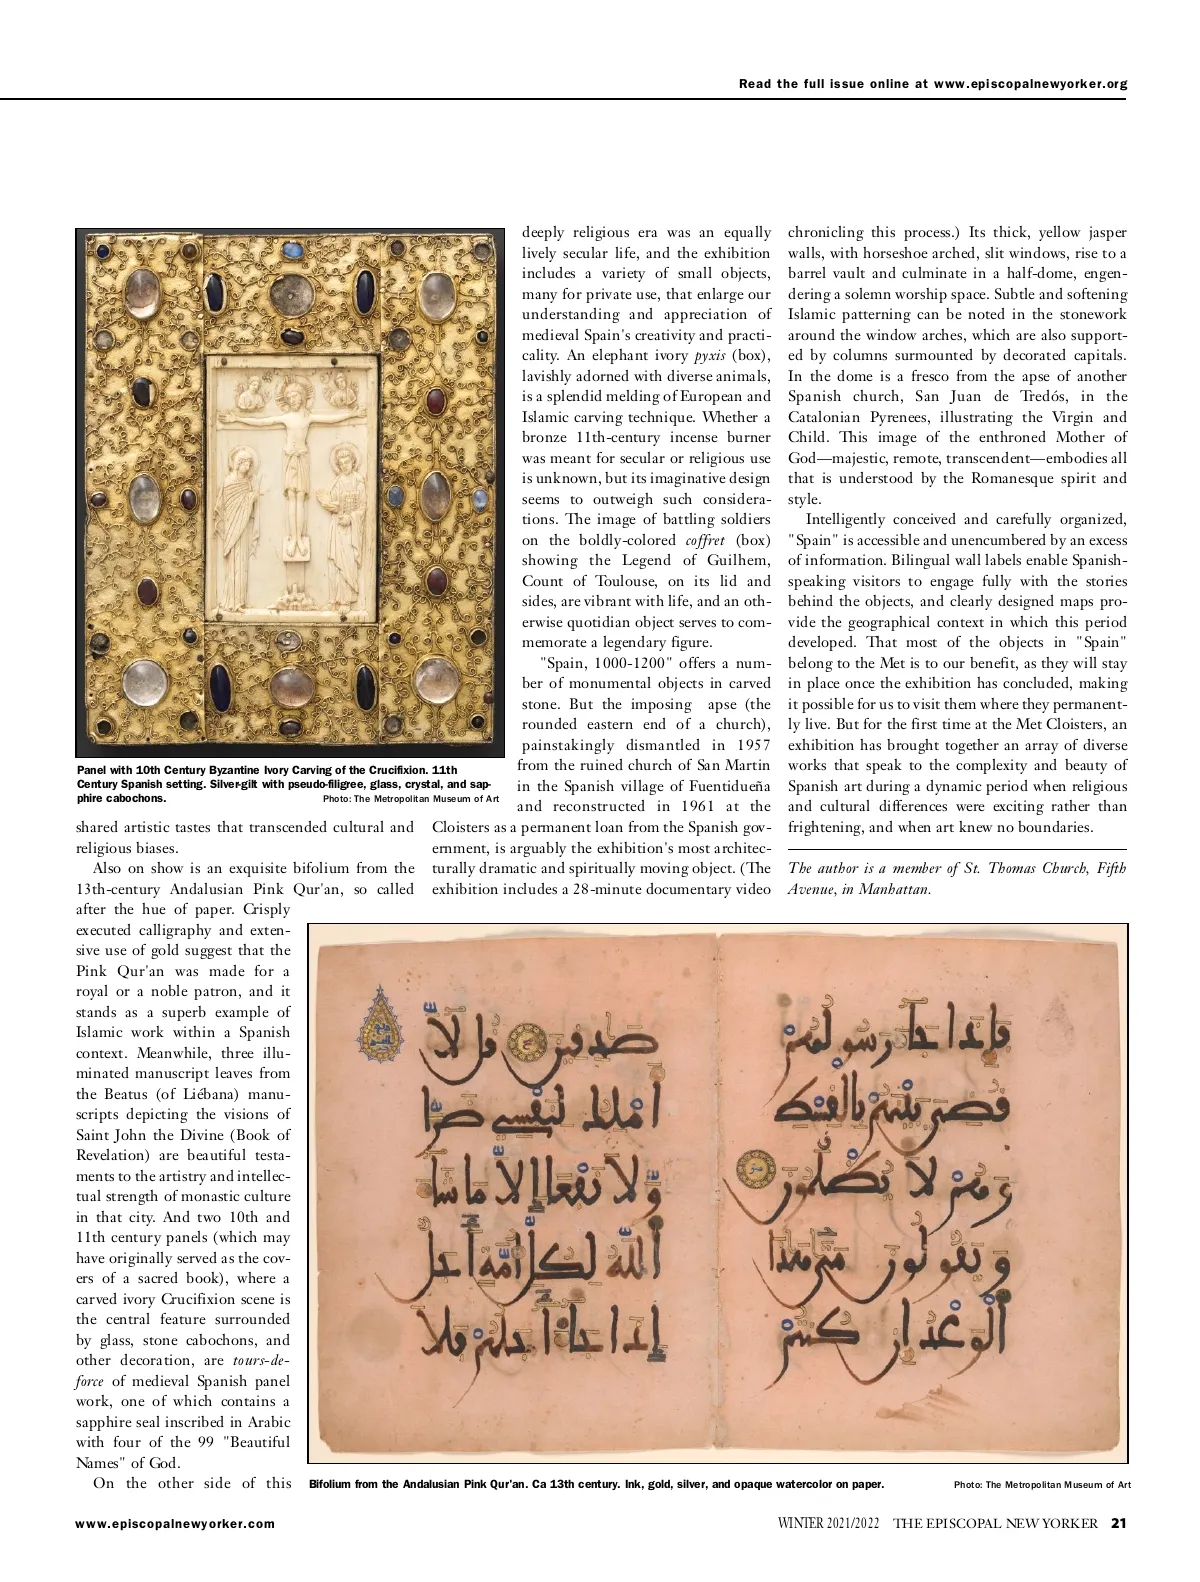 Read the full issue online at www.episcopalnewyorker.org
Panel with 10th Century Byzantine Ivory Carving of the Crucifixion. 11th
Century Spanish setting. Silver-gilt with pseudo-filigree, glass, crystal, and sap-
phire cabochons.
Photo: The Metropolitan Museum of Art
shared artistic tastes that transcended cultural and
religious biases.
Also on show is an exquisite bifolium from the
13th-century Andalusian Pink Qur'an, so called
after the hue of paper. Crisply
executed calligraphy and exten-
sive use of gold suggest that the
Pink Qur'an was made for a
royal or a noble patron, and it
stands as a superb example of
Islamic work within a Spanish
context. Meanwhile, three illu-
minated manuscript leaves from
the Beatus (of Liébana) manu-
scripts depicting the visions of
Saint John the Divine (Book of
Revelation) are beautiful testa-
ments to the artistry and intellec-
tual strength of monastic culture
in that city. And two 10th and
11th century panels (which may
have originally served as the cov-
ers of a sacred book), where a
carved ivory Crucifixion scene is
the central feature surrounded
by glass, stone cabochons, and
other decoration, are tours-de-
force of medieval Spanish panel
work, one of which contains a
sapphire seal inscribed in Arabic
with four of the 99 "Beautiful
Names" of God.
On the other side of this
deeply religious era was an equally
lively secular life, and the exhibition
includes a variety of small objects,
many for private use, that enlarge our
understanding and appreciation of
medieval Spain's creativity and practi-
cality. An elephant ivory pyxis (box),
lavishly adorned with diverse animals,
is a splendid melding of European and
Islamic carving technique. Whether a
bronze 11th-century incense burner
was meant for secular or religious use
is unknown, but its imaginative design
seems to outweigh such considera-
tions. The image of battling soldiers
on the boldly-colored coffret (box)
showing the Legend of Guilhem,
Count of Toulouse, on its lid and
sides, are vibrant with life, and an oth-
erwise quotidian object serves to com-
memorate a legendary figure.
"Spain, 1000-1200" offers a num-
ber of monumental objects in carved
stone. But the imposing apse (the
rounded eastern end of a church),
painstakingly dismantled in 1957
from the ruined church of San Martin
in the Spanish village of Fuentidueña
and reconstructed in 1961 at the
Cloisters as a permanent loan from the Spanish gov-
ernment, is arguably the exhibition's most architec-
turally dramatic and spiritually moving object. (The
exhibition includes a 28-minute documentary video
chronicling this process.) Its thick, yellow jasper
walls, with horseshoe arched, slit windows, rise to a
barrel vault and culminate in a half-dome, engen-
dering a solemn worship space. Subtle and softening
Islamic patterning can be noted in the stonework
around the window arches, which are also support-
ed by columns surmounted by decorated capitals.
In the dome is a fresco from the apse of another
Spanish church, San Juan de Tredós, in the
Catalonian Pyrenees, illustrating the Virgin and
Child. This image of the enthroned Mother of
God—majestic, remote, transcendent—embodies all
that is understood by the Romanesque spirit and
style.
Intelligently conceived and carefully organized,
"Spain" is accessible and unencumbered by an excess
of information. Bilingual wall labels enable Spanish-
speaking visitors to engage fully with the stories
behind the objects, and clearly designed maps pro-
vide the geographical context in which this period
developed. That most of the objects in "Spain"
belong to the Met is to our benefit, as they will stay
in place once the exhibition has concluded, making
it possible for us to visit them where they permanent-
ly live. But for the first time at the Met Cloisters, an
exhibition has brought together an array of diverse
works that speak to the complexity and beauty of
Spanish art during a dynamic period when religious
and cultural differences were exciting rather than
frightening, and when art knew no boundaries.
The author is a member of St. Thomas Church, Fifth
Avenue, in Manhattan.
فإذا جا رسولهم
قضي بينهم بالقسط
وهم لا يظلمون
ويقولون متى هذا
الوعد إن كنتم
صدقين قل لا
أملك لنفسي ضرا
ولا نفعا إلا ما شا
الله لكل أمة أجل
إذا جا أجلهم فلا
Bifolium from the Andalusian Pink Qur'an. Ca 13th century. Ink, gold, silver, and opaque watercolor on paper.
Photo: The Metropolitan Museum of Art
www.episcopalnewyorker.com
WINTER 2021/2022 THE EPISCOPAL NEW YORKER 21